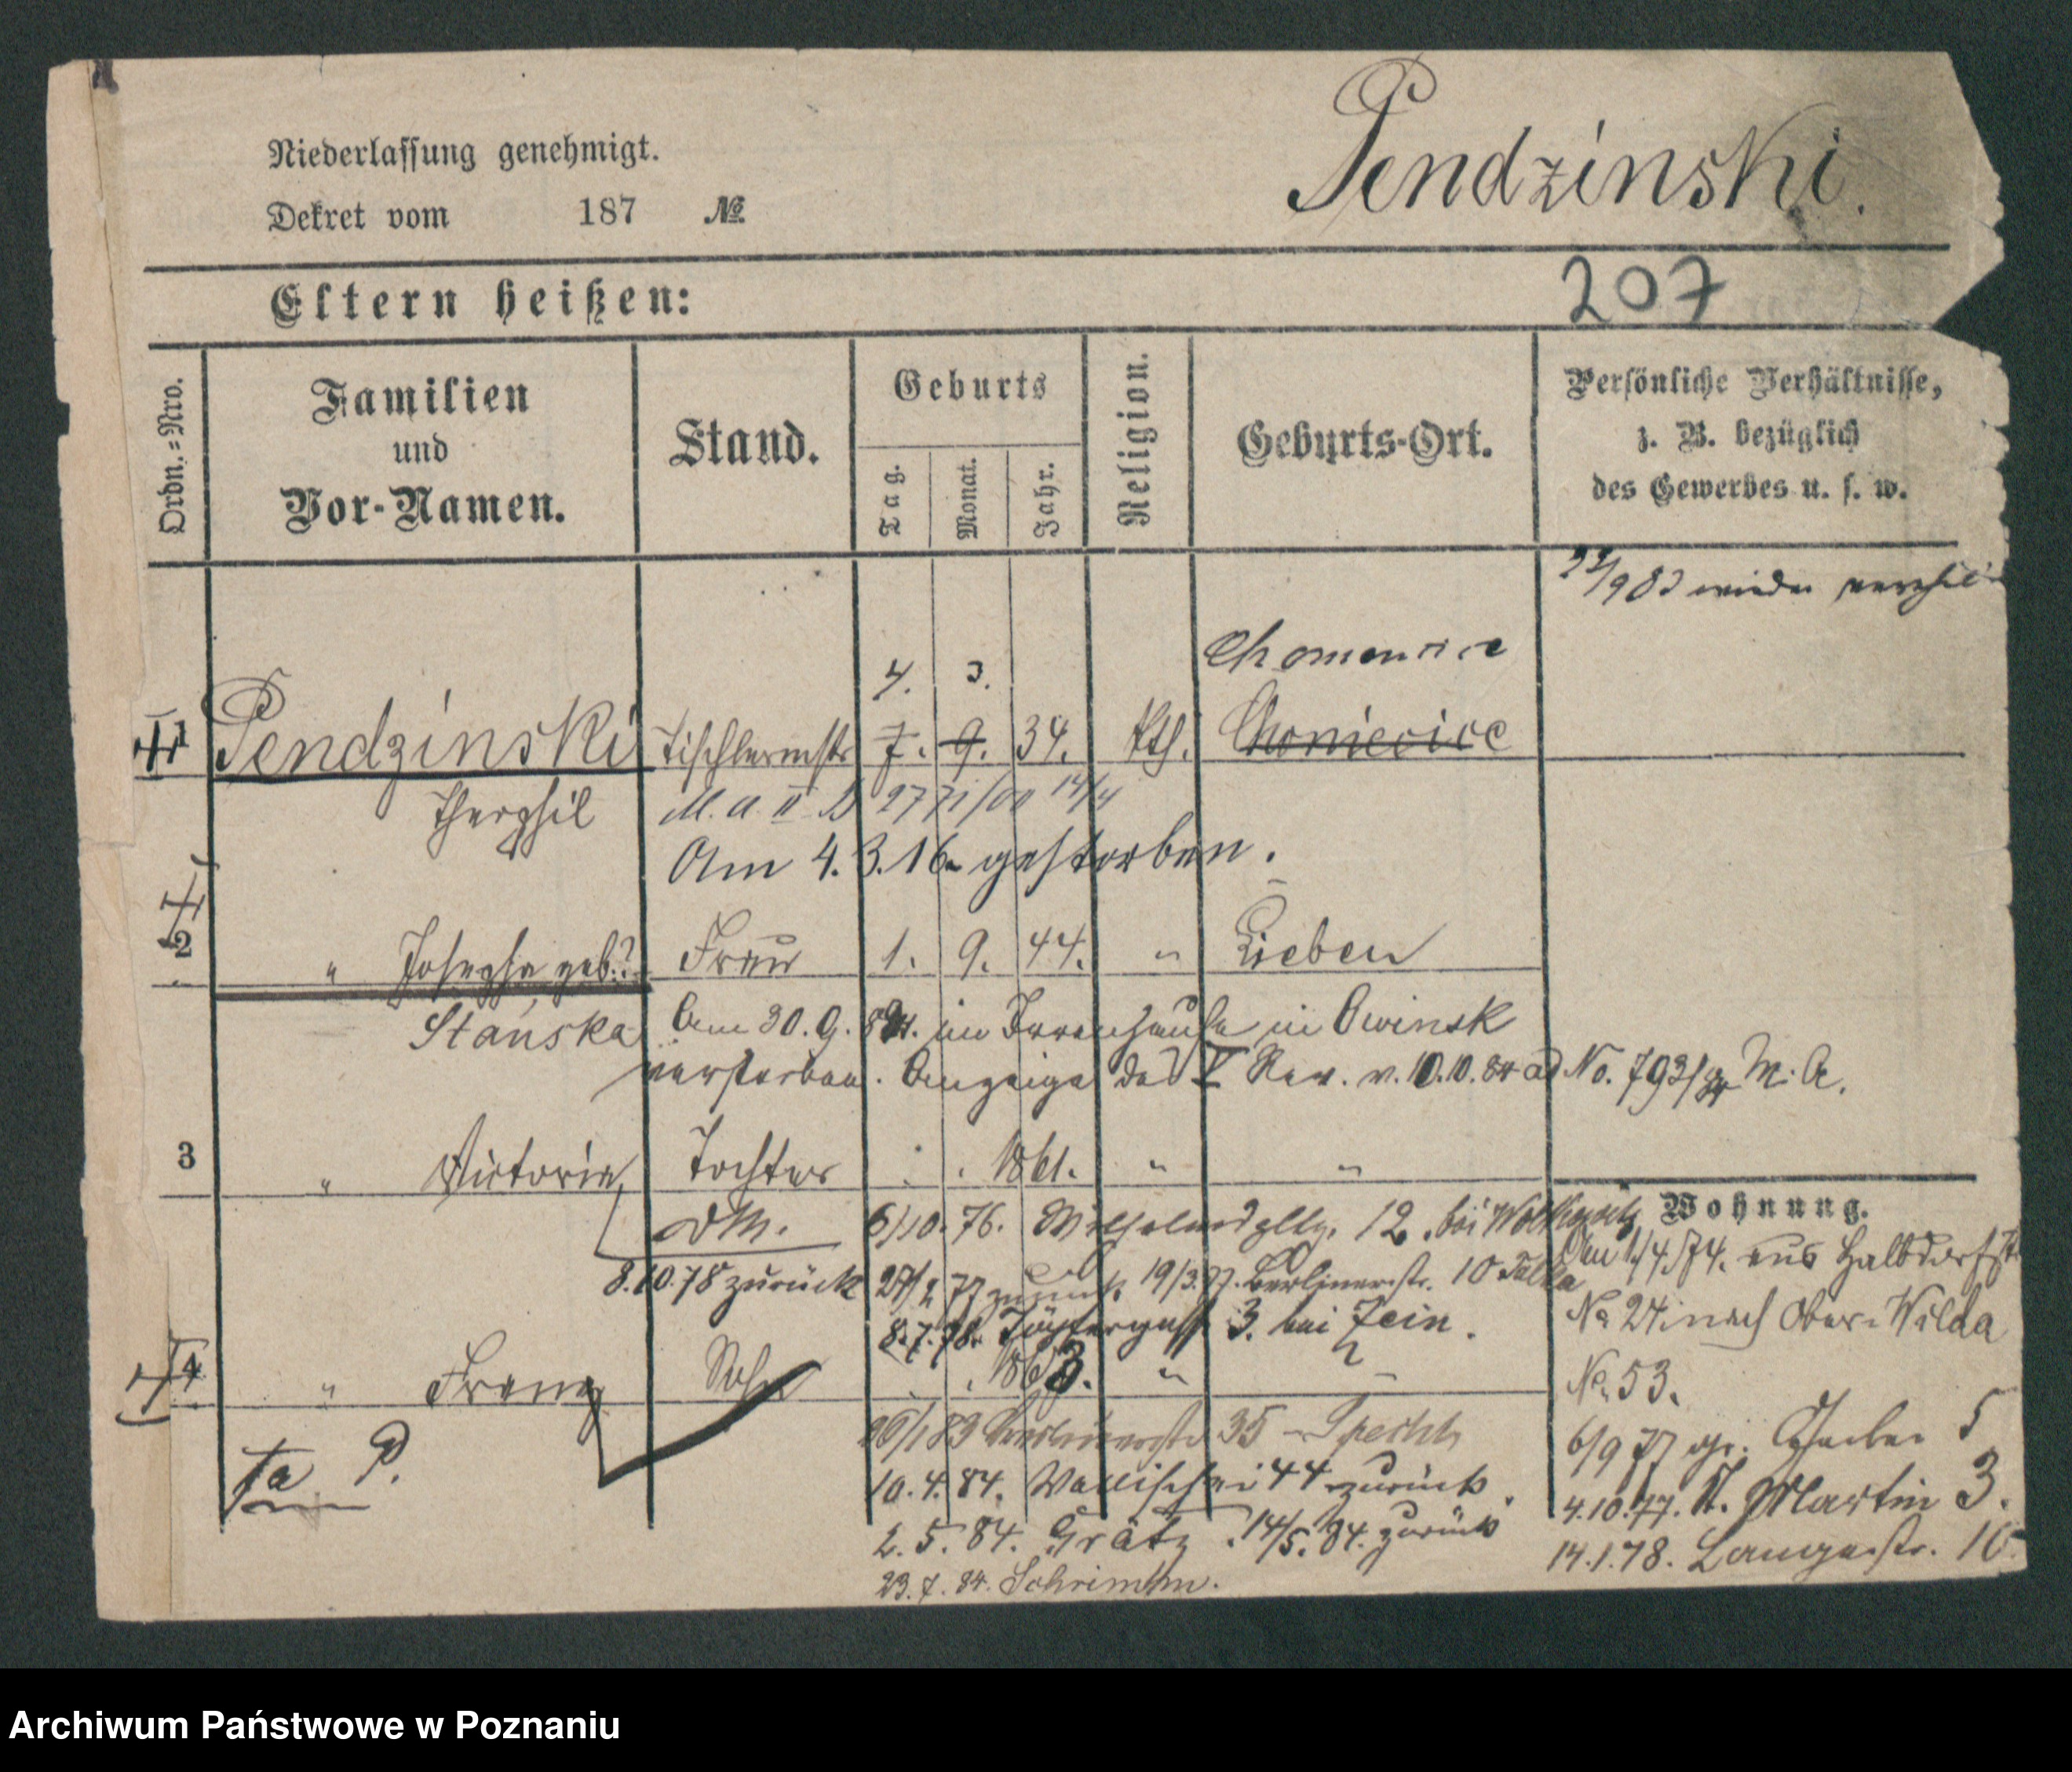 Niederlassung genehmigt.
Dekret vom 187 №
Pendzinski.
Eltern heißen:
207
Ordn.=Nro.
Familien
und
Vor-Namen.
Stand.
Geburts
Tag.
Monat.
Jahr.
Religion.
Geburts-Ort.
Persönliche Verhältnisse,
z. B. bezüglich
des Gewerbes u. s. w.
wieder
4. 3.
1 Pendzinski Tischlermstr 7. 9. 34. Kth.
Theophil M. A. II
Am 4.3.16 gestorben.
2 " Josepha geb. ? Frau 1. 9. 44. " Lieben
Stańska Am 30.9.84. im Irrenhause in Owinsk
verstorben. Anzeige des V Rev. v. 10.10.84 ad No. 793/84 M. A.
3 " Victoria Tochter 1861. " "
Wohnung.
DM. 6/10.76. 12. bei
Am 1/4.74. aus Halbdorfstr
8.10.78 zurück 27/2 77 zurück 19/3.77. Berlinerstr. 10
No 24. nach Ober-Wilda
8.7.78. 3. bei Jein.
No. 53.
4 " Franz Sohn 1863. " "
26/1 83 Berlinerstr 35 - Specht
6/9 77 gr. Gerber 5
Ta P.
10.4.84. Wallischei 44 zurück.
4.10.77. St. Martin 3.
2.5.84. Grätz. 14/5.84. zurück
14.1.78. Langestr. 10.
23.7.84. Schrimm.
Archiwum Państwowe w Poznaniu